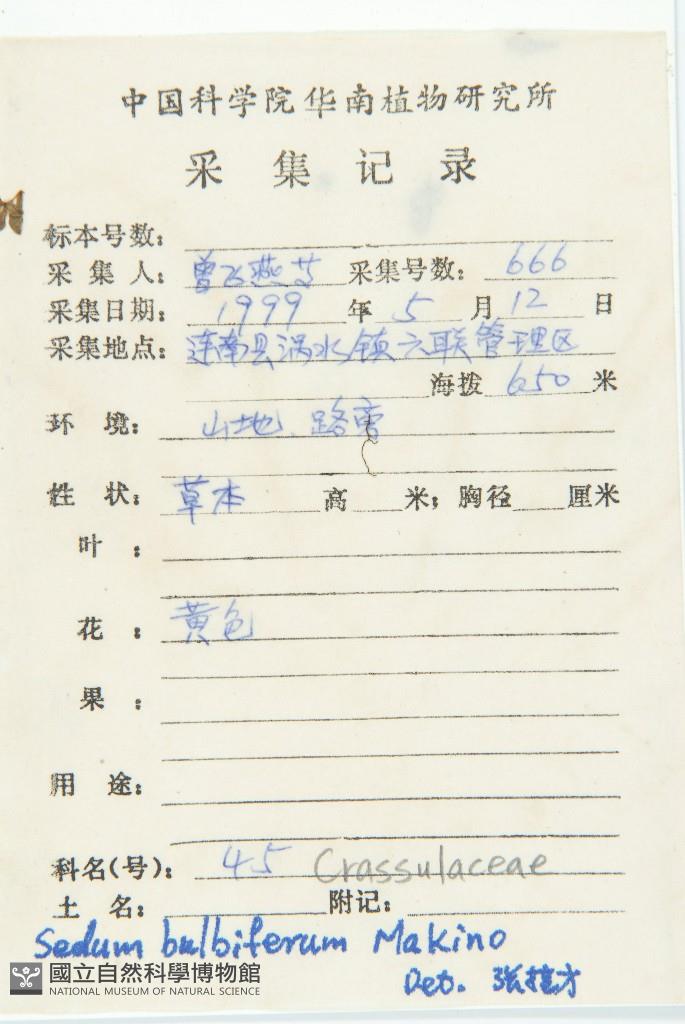 中国科学院华南植物研究所
采集记录
标本号数：
采集人：曾飞燕等 采集号数：666
采集日期：1999年5月12日
采集地点：连南县涡水镇六联管理区
海拨650米
环境：山地、路旁
性状：草本 高 米；胸径 厘米
叶：
花：黄色
果：
用途：
科名(号)：45 Crassulaceae
土名： 附记：
Sedum bulbiferum Makino
Det. 张
國立自然科學博物館
NATIONAL MUSEUM OF NATURAL SCIENCE